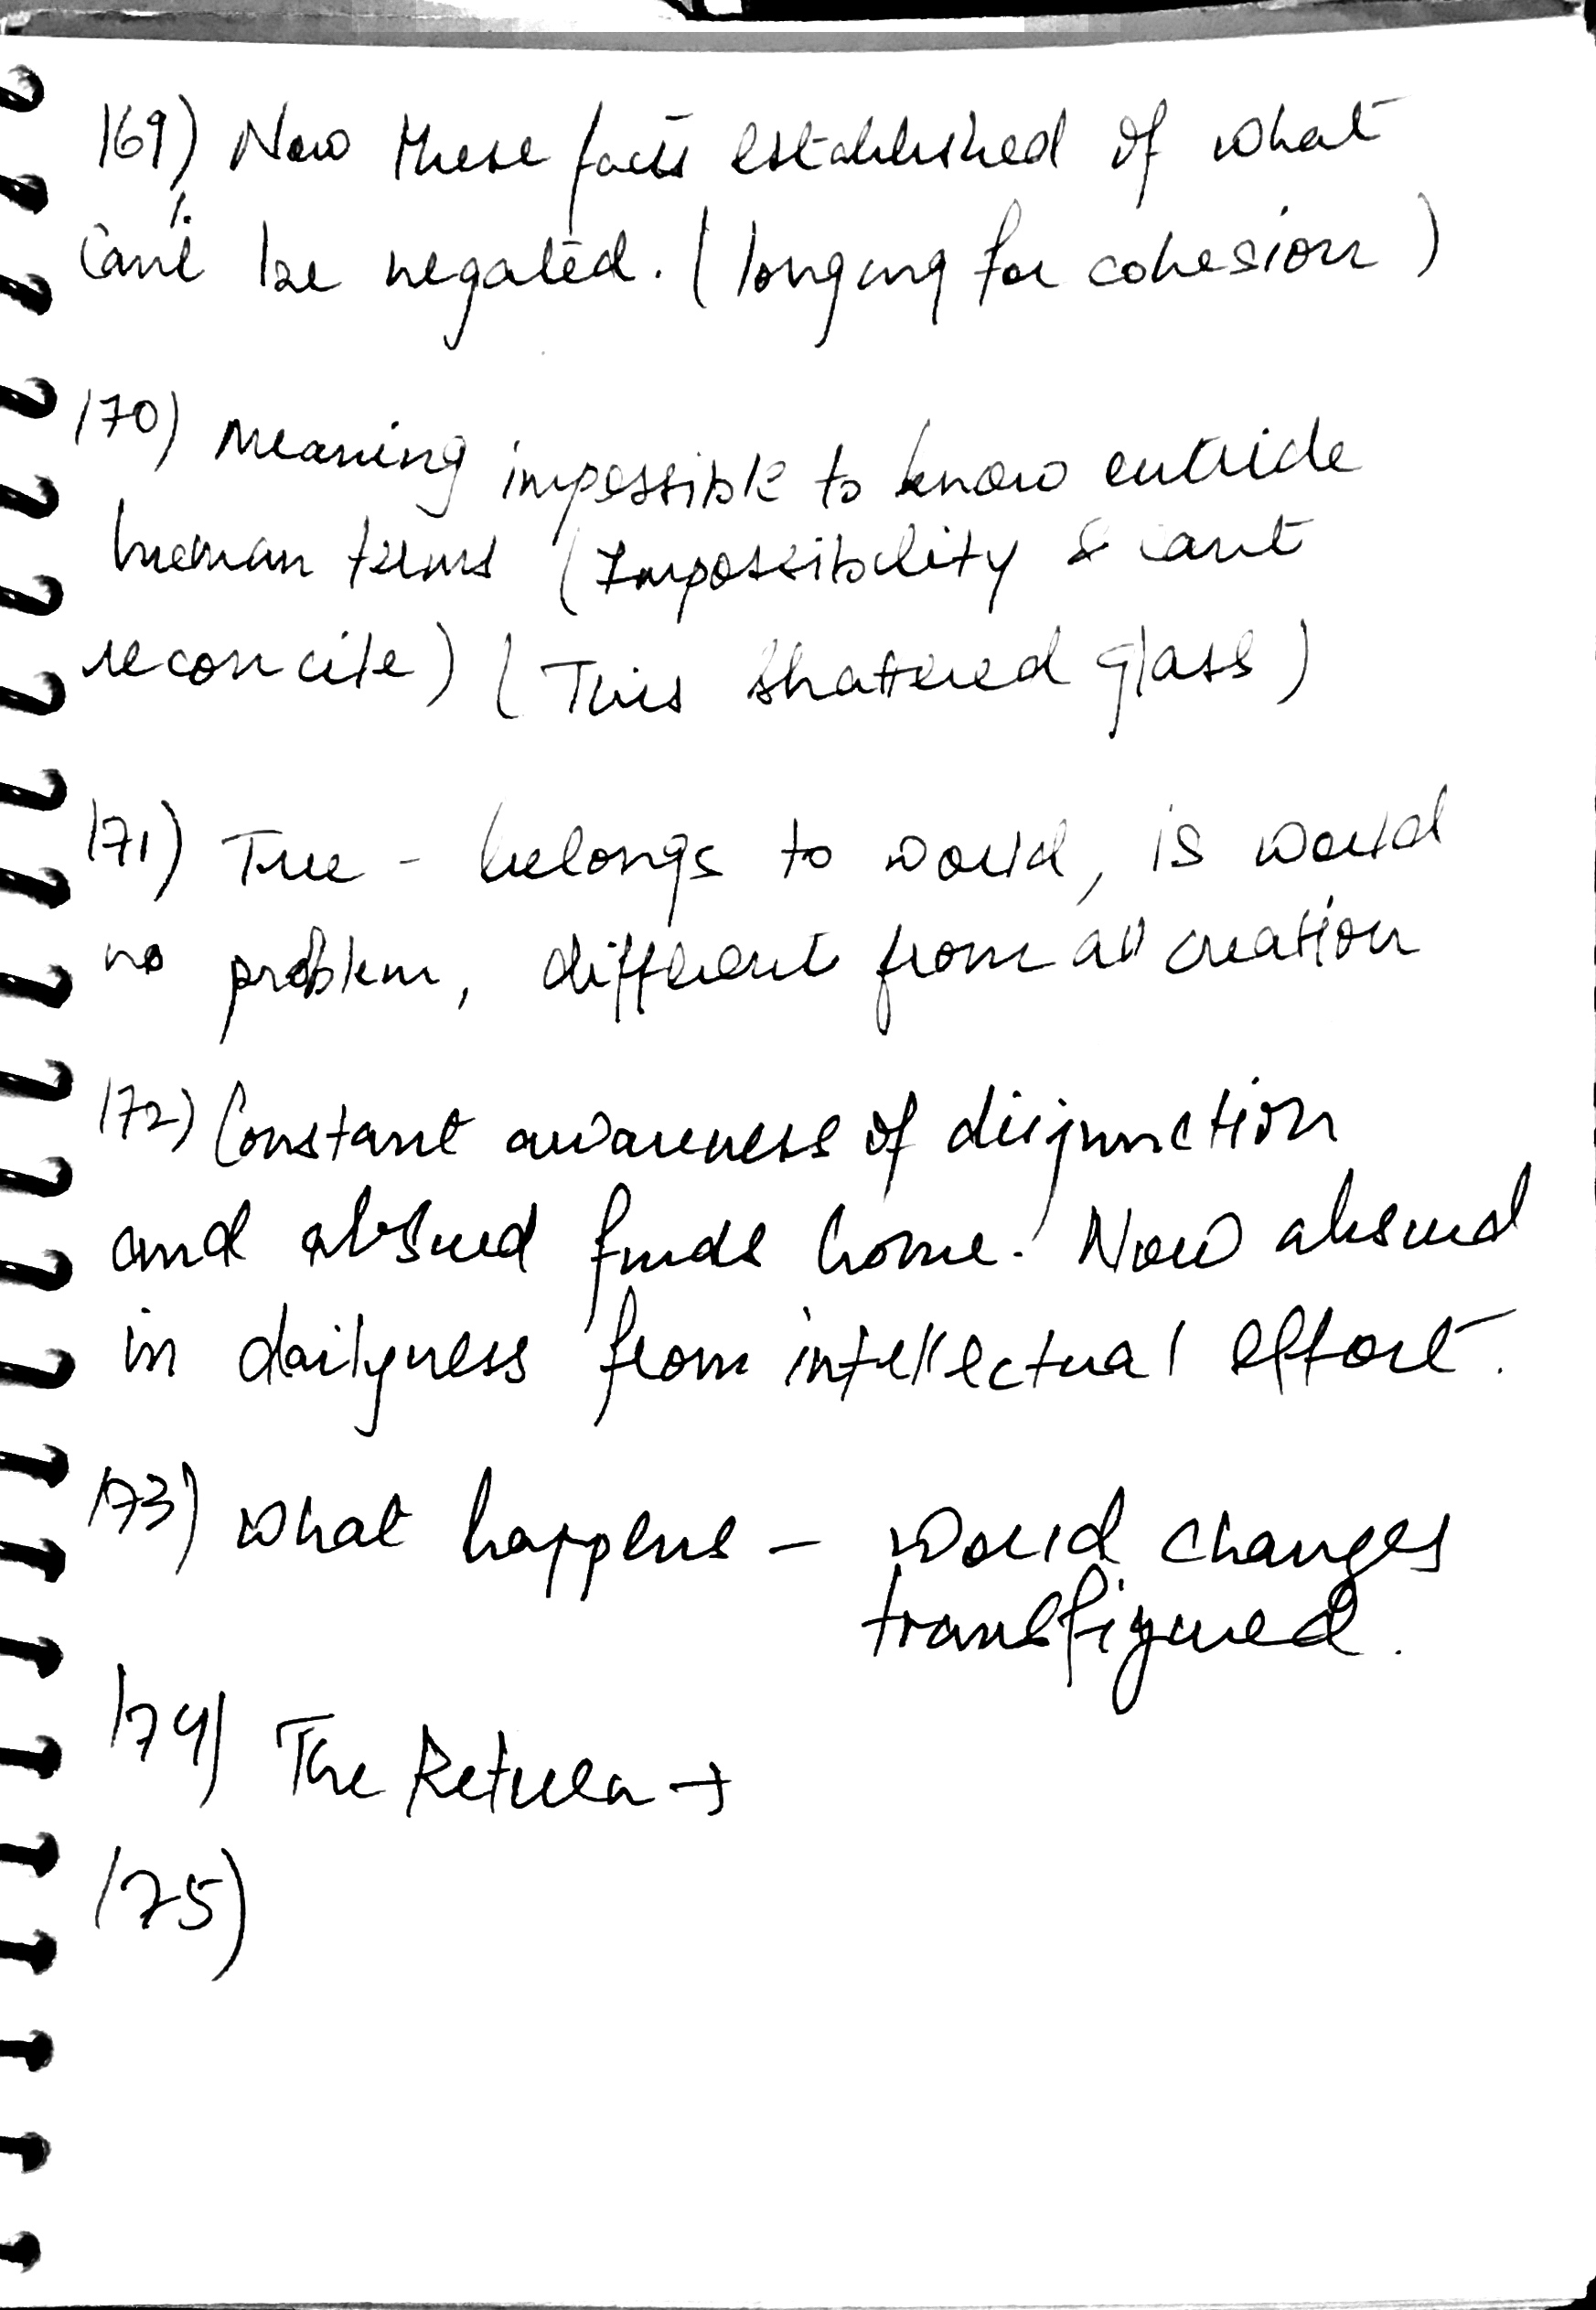 169) Now these facts established of what
can't be negated. (longing for cohesion)
170) Meaning impossible to know outside
human terms (Impossibility & cant
reconcile) (This shattered glass)
171) Tree - belongs to world, is world
no problem, different from all creation
172) Constant awareness of disjunction
and absurd finds home. Now absurd
in dailyness from intellectual effort.
173) What happens - World changes
transfigured.
174) The Return →
175)